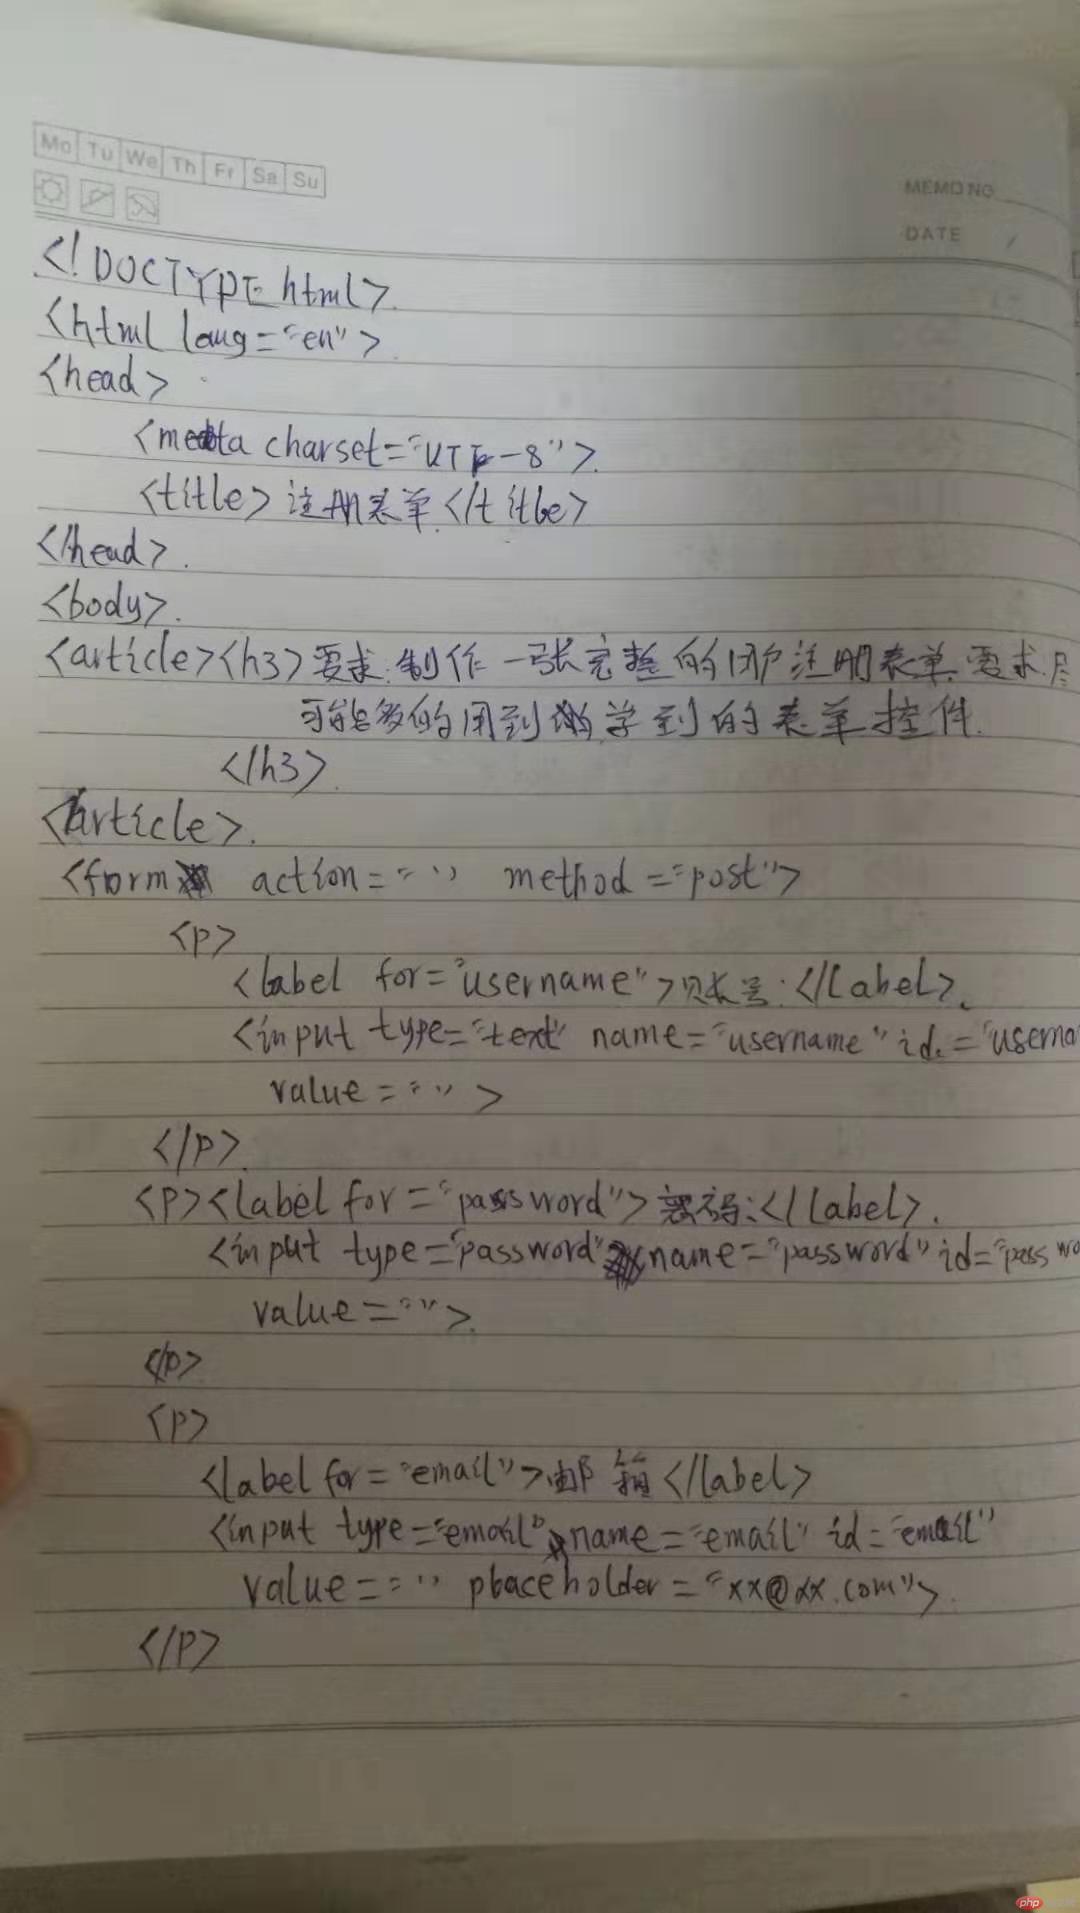 Mo Tu We Th Fr Sa Su
MEMO NO
DATE /
<!DOCTYPE html>
<html lang="en">
<head>
<meta charset="UTF-8">
<title>注册表单</title>
</head>
<body>
<article><h3>要求:制作一张完整的用户注册表单,要求尽
可能多的用到所学到的表单控件.
</h3>
</article>
<form action="" method="post">
<p>
<label for="username">账号:</label>
<input type="text" name="username" id="userna
value="">
</p>
<p><label for="password">密码:</label>
<input type="password" name="password" id="passwo
value="">
</p>
<p>
<label for="email">邮箱</label>
<input type="email" name="email" id="email"
value="" placeholder="xx@xx.com">
</p>
php